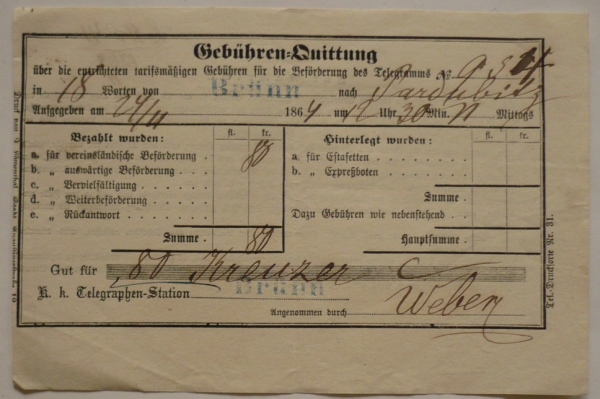 Gebühren-Quittung
über die entrichteten tarifsmäßigen Gebühren für die Beförderung des Telegramms №
in 18 Worten von Brünn nach Pardubitz
Aufgegeben am 24/11 1864 um 12 Uhr 30 Min. Mittags
Bezahlt wurden: fl. kr.
a. für vereinsländische Beförderung . 80
b. „ auswärtige Beförderung . . .
c. „ Vervielfältigung . . . .
d. „ Weiterbeförderung . . . .
e. „ Rückantwort . . . . .
Summe . 80
Hinterlegt wurden: fl. kr.
a. für Estafetten . . . . .
b. „ Expreßboten . . . .
Summe . .
Dazu Gebühren wie nebenstehend . .
Hauptsumme . .
Gut für 80 Kreuzer
K. k. Telegraphen-Station Brünn
Angenommen durch Weber
Tel.-Drucksorte Nr. 31.